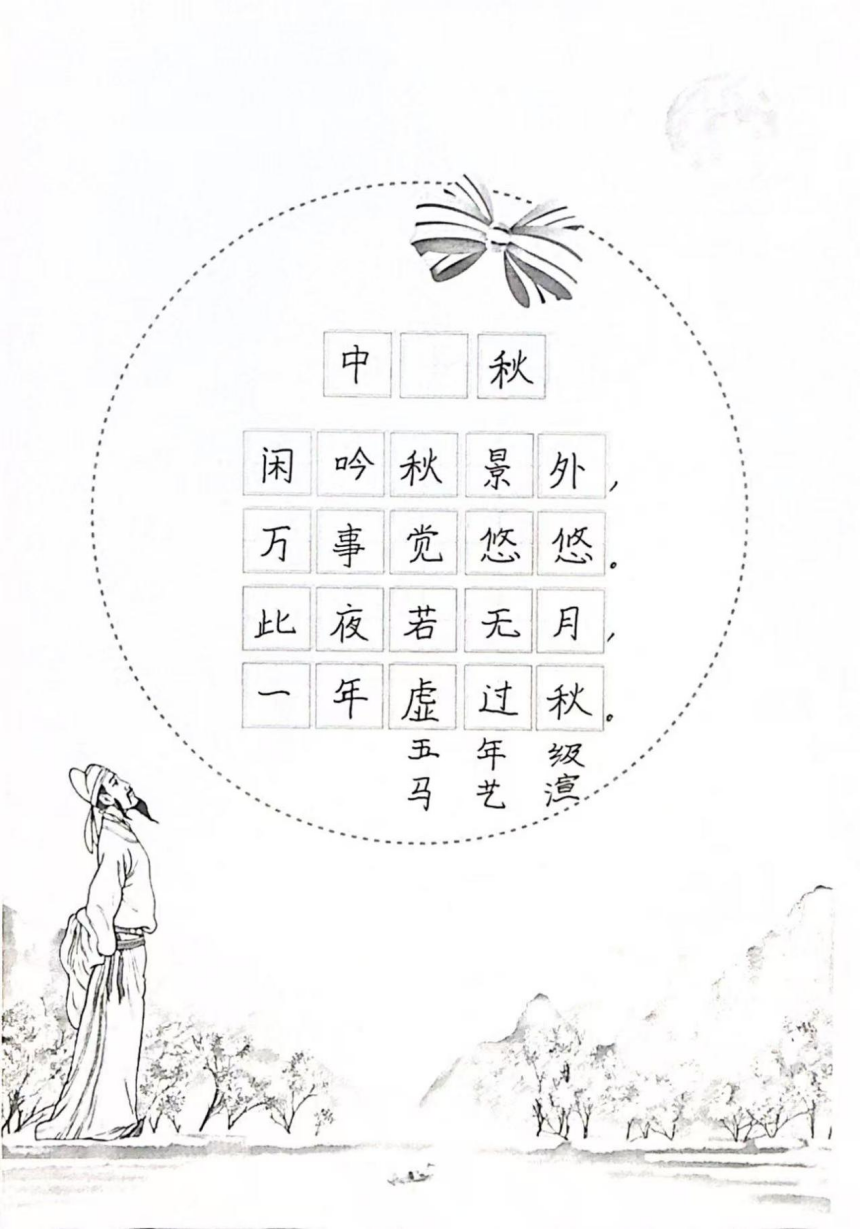 中秋
闲吟秋景外，
万事觉悠悠。
此夜若无月，
一年虚过秋。
五年级
马艺渲